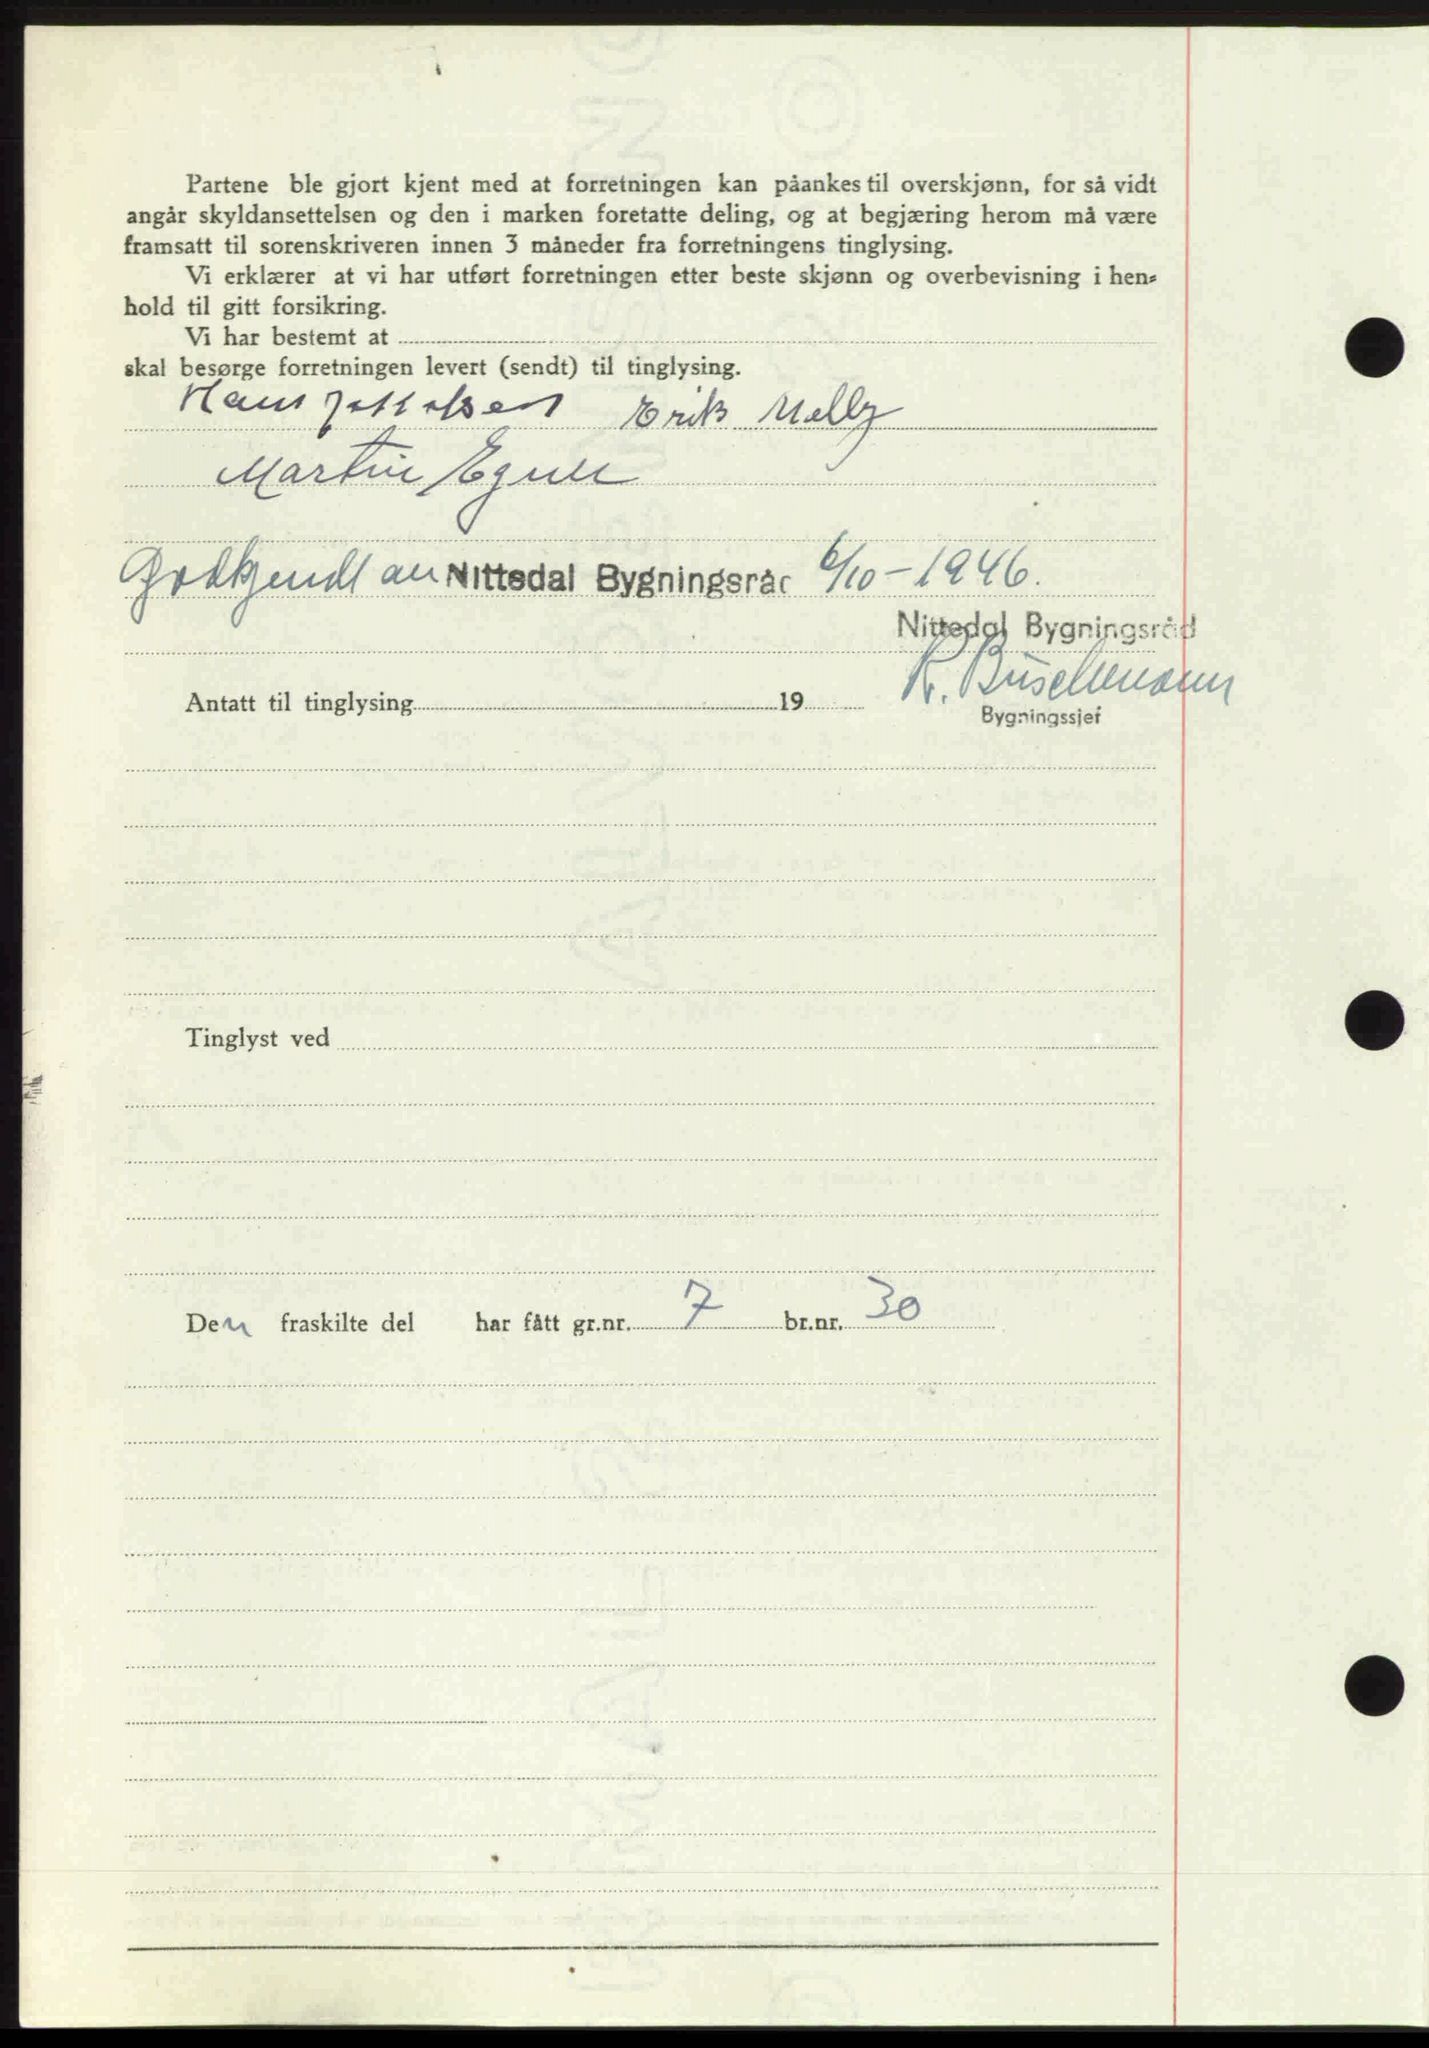 Partene ble gjort kjent med at forretningen kan påankes til overskjønn, for så vidt
angår skyldansettelsen og den i marken foretatte deling, og at begjæring herom må være
framsatt til sorenskriveren innen 3 måneder fra forretningens tinglysing.
Vi erklærer at vi har utført forretningen etter beste skjønn og overbevisning i hen-
hold til gitt forsikring.
Vi har bestemt at
skal besørge forretningen levert (sendt) til tinglysing.
Hans Erik
Martin
Godkjendt av Nittedal Bygningsråd 6/10-1946.
Nittedal Bygningsråd
R. Buschmann
Antatt til tinglysing 19
Bygningssjef
Tinglyst ved
Den fraskilte del har fått gr.nr. 7 br.nr. 30